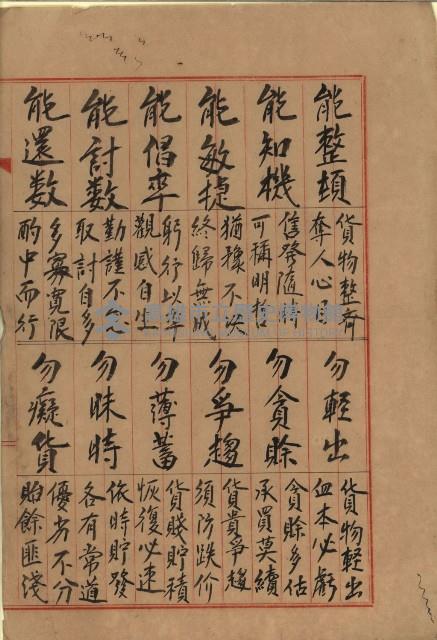 能整頓
貨物整齊
奪人心目
能知機
售發隨時
可稱明哲
能敏捷
猶豫不决
終歸無成
能倡率
躬行以率
觀感自生
能討数
勤謹不怠
取討自多
能還数
多寡寬限
酌中而行
勿輕出
貨物輕出
血本必虧
勿貪賒
貪賒多估
承買莫續
勿爭趨
貨貴爭趨
須防跌价
勿薄蓄
貨賤貯積
恢復必速
勿昧時
依時貯發
各有常道
勿癡貨
優劣不分
貽餘匪淺
高雄市立歷史博物館